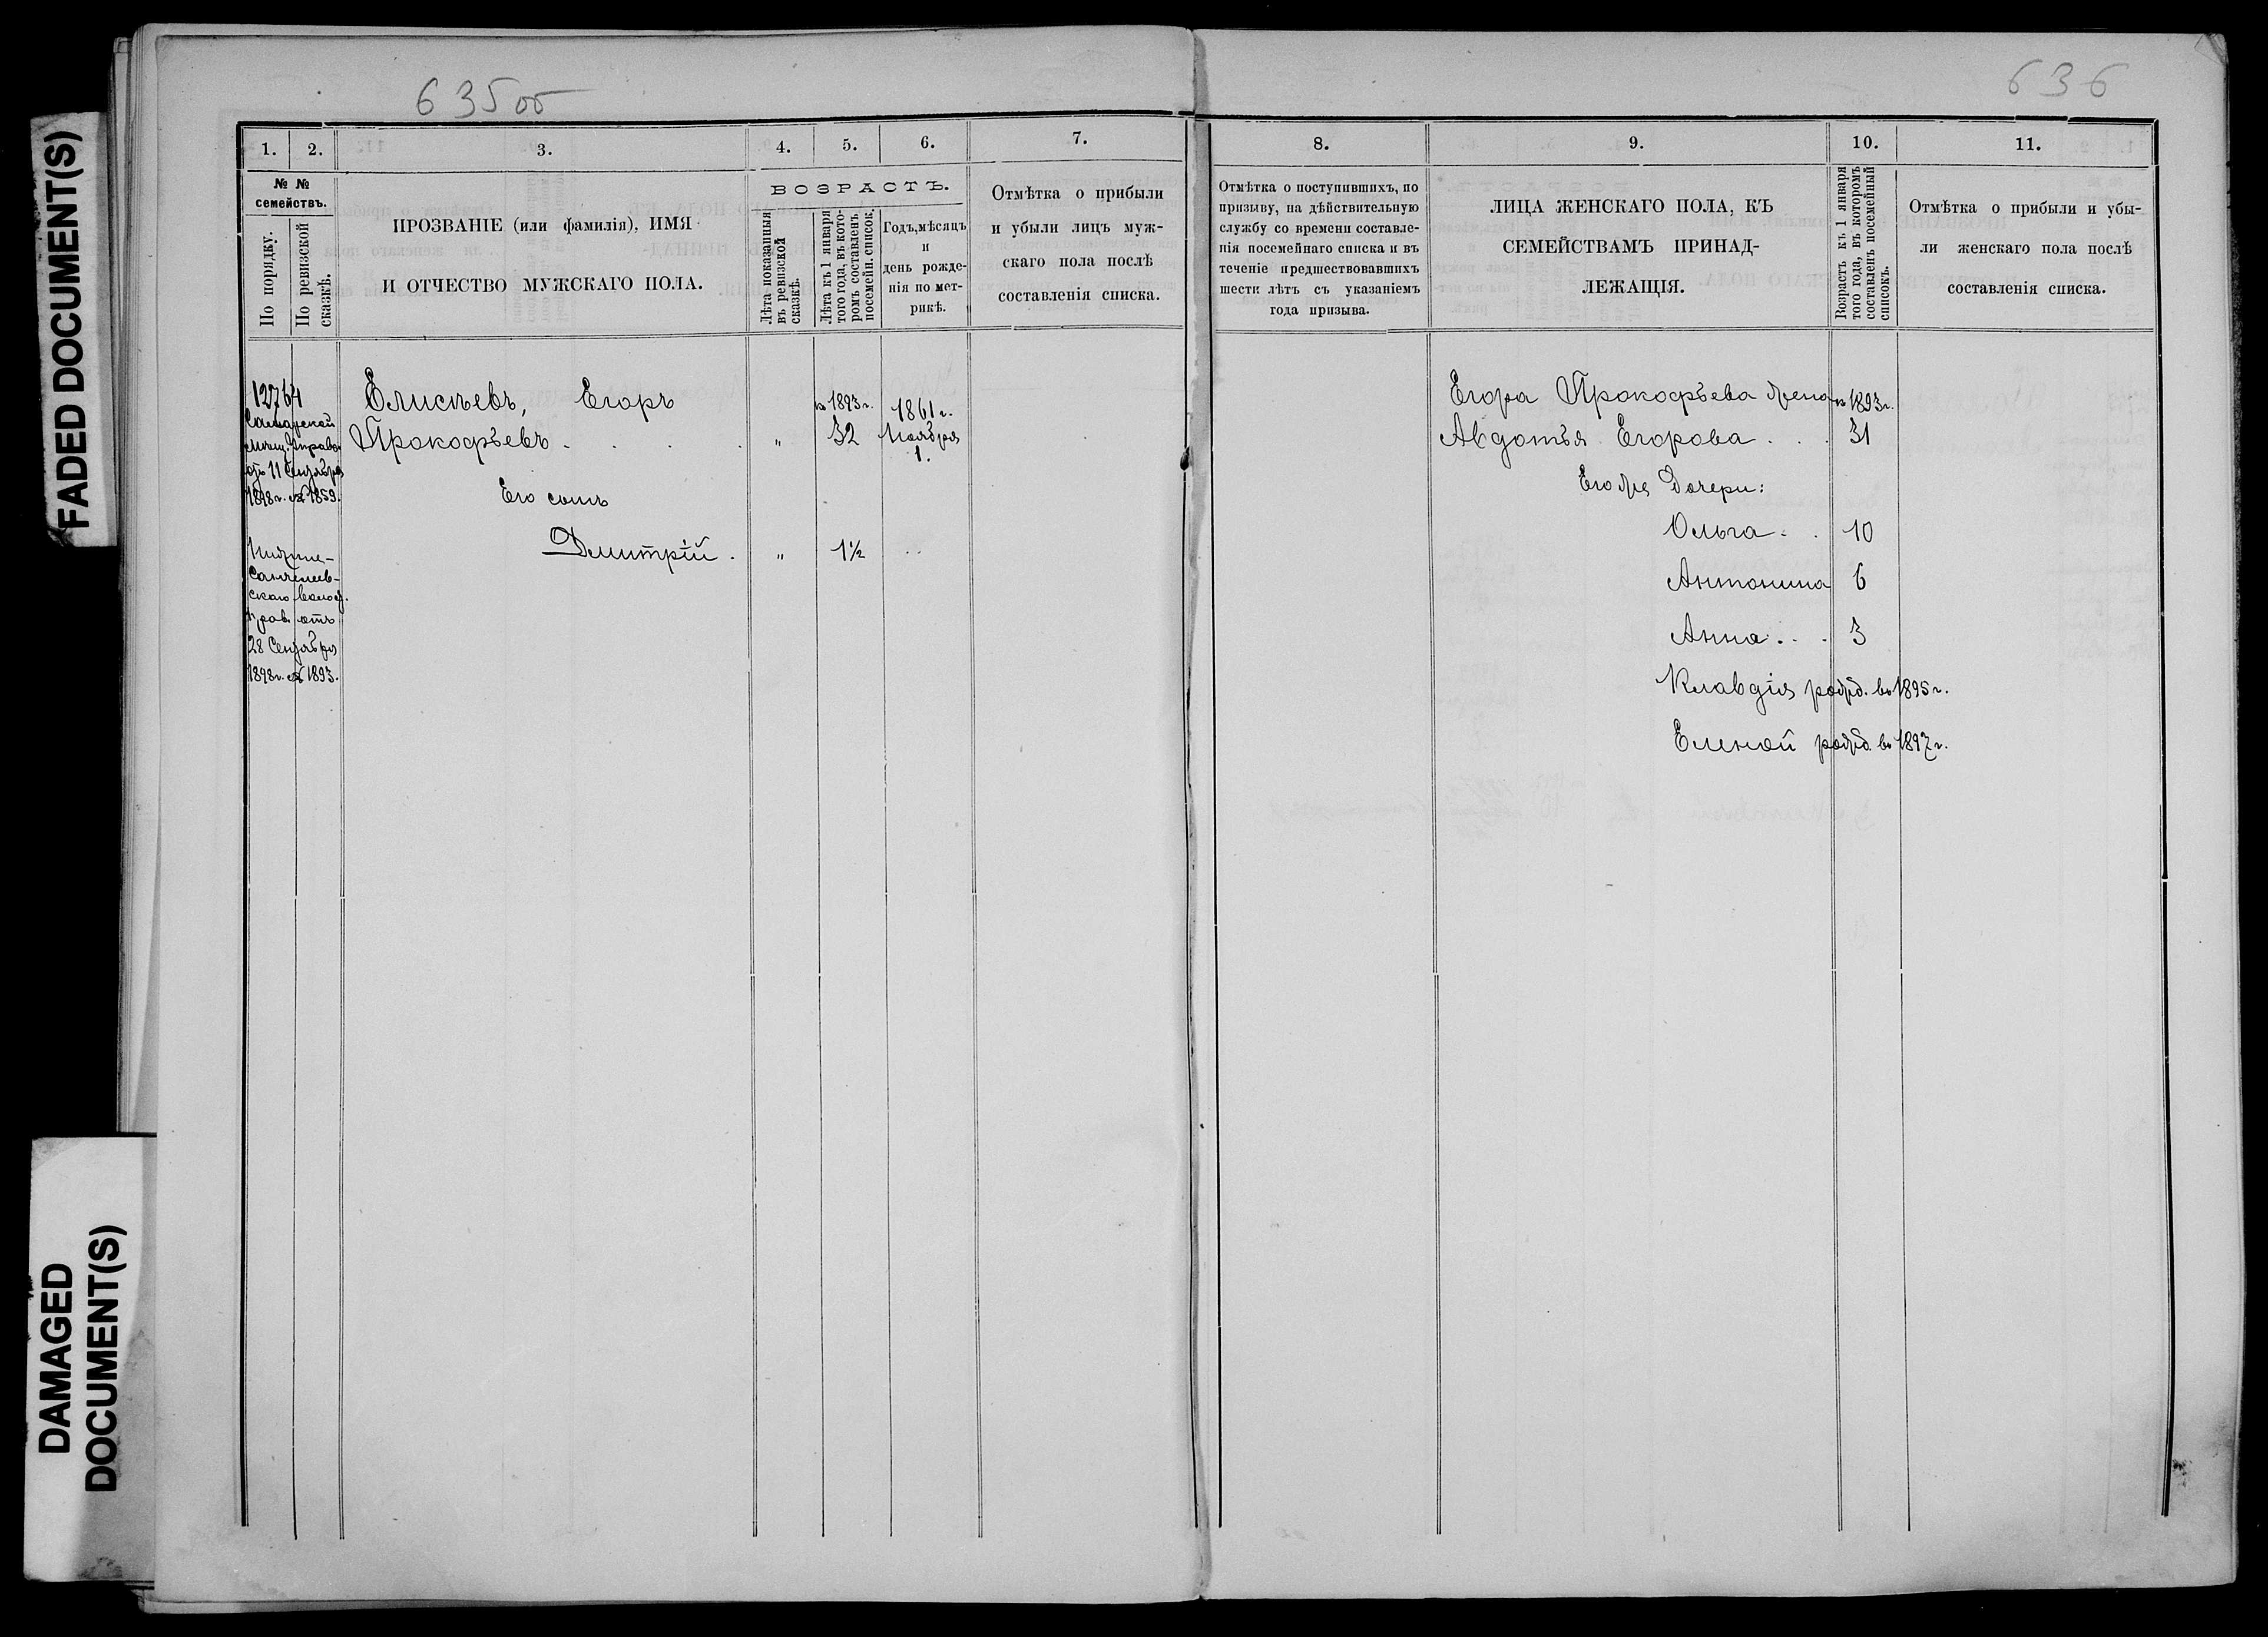 FADED DOCUMENT(S)
DAMAGED
DOCUMENT(S)
635об
1.
2.
3.
4.
5.
6.
7.
№ №
семействъ.
По порядку.
По ревизской
сказкѣ.
ПРОЗВАНІЕ (или фамилія), ИМЯ
И ОТЧЕСТВО МУЖСКАГО ПОЛА.
ВОЗРАСТЪ.
Лѣта показанныя
въ ревизской
сказкѣ.
Лѣта къ 1 января
того года, въ кото-
ромъ составленъ
посемейн. список.
Годъ, мѣсяцъ
и
день рожде-
нія по мет-
рикѣ.
Отмѣтка о прибыли
и убыли лицъ муж-
скаго пола послѣ
составленія списка.
12764
Самарской
мѣщ. Управы
отъ 11 Сентября
1898 г. № 1859.
Елисѣевъ, Егоръ
въ 1893 г.
1861 г.
Прокофьевъ . . . . „ 32 Ноября
1.
Его сынъ
Дмитрій . „ 1½ ..
Санчелеев-
скаго волост.
прав. отъ
28 Сентября
1898 г. № 1893.
636
8.
9.
10.
11.
Отмѣтка о поступившихъ, по
призыву, на дѣйствительную
службу со времени составле-
нія посемейнаго списка и въ
теченіе предшествовавшихъ
шести лѣтъ съ указаніемъ
года призыва.
ЛИЦА ЖЕНСКАГО ПОЛА, КЪ
СЕМЕЙСТВАМЪ ПРИНАД-
ЛЕЖАЩІЯ.
Возрастъ къ 1 января
того года, въ которомъ
составленъ посемейный
списокъ.
Отмѣтка о прибыли и убы-
ли женскаго пола послѣ
составленія списка.
Егора Прокофьева жена въ 1893 г.
Авдотья Егорова . . . 31
Его же дочери:
Ольга . . 10
Антонина 6
Анна . . . 3
Клавдія рожд. въ 1895 г.
Еленой рожд. въ 1897 г.